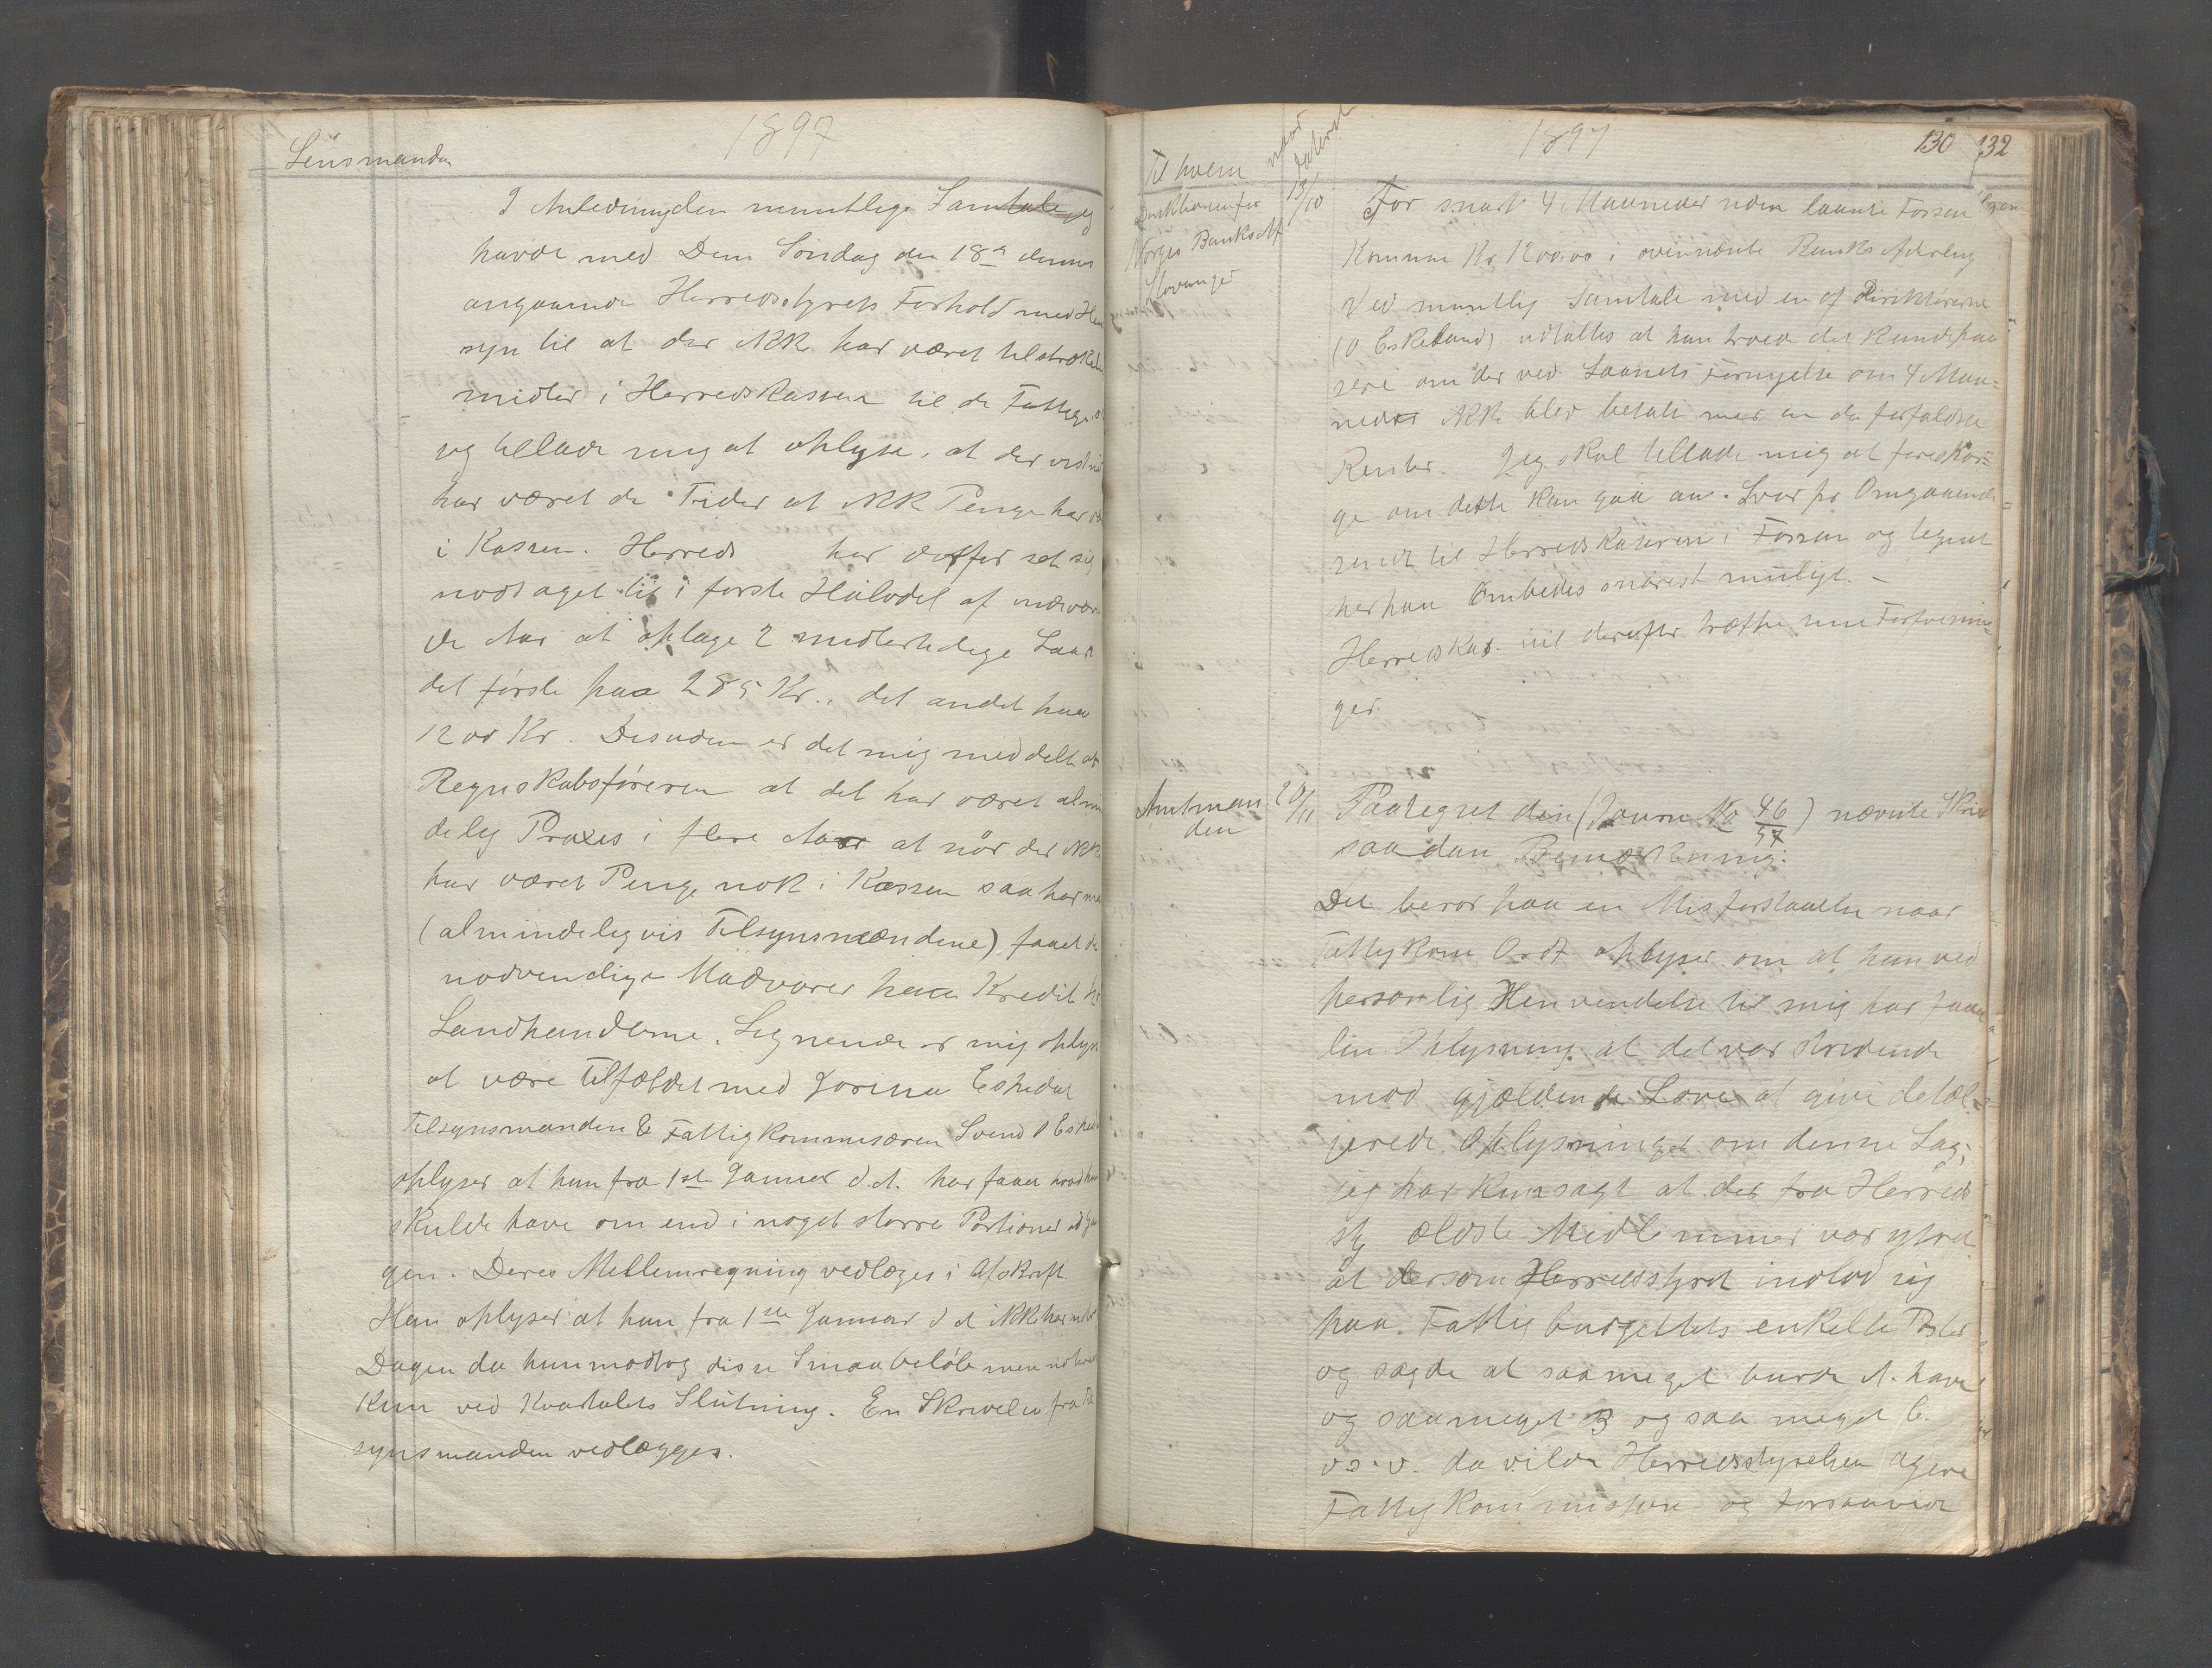 1897
Lensmanden
I Anledning den mundtlige Samtale jeg
havde med Dem Søndag den 18de dennes
angaaende Herredsstyrets Forhold med Hen
syn til at der ikke har været tilstrækkel
midler i Herredskassen til de Fattige
jeg tillade mig at oplyse, at der
har været de Tider at ikke Penge har
i Kassen. Herreds har derfor set sig
nødsaget til i første Halvdel af nærvær
de Aar at optage 2 midlertidige Laan
det første paa 285 Kr., det andet paa
1200 Kr. Desuden er det mig meddelt af
Regnskabsføreren at det har været almin
delig Praxis i flere Aar at når der ikke
har været Penge nok i Kassen saa har man
(almindeligvis Tilsynsmændene) faaet de
nødvendige Madvarer paa Kredit hos
Landhandlerne. Lignende er mig oplyst
at være tilfældet med Jorina Eskedal
Tilsynsmanden & Fattigkommisæren Svend
oplyser at hun fra 1ste Januar d.A. har faaet hvad hun
skulde have om end i noget større Portioner ad
gen. Deres Mellemregning vedlægges i Afskrift
Han oplyser at han fra 1ste Januar d A ikke har
Dagen da hun modtog disse Smaabeløb men
kun ved Kvartalets Slutning. En Skrivelse fra Til
synsmanden vedlægges.
1897
130 132
Til hvem
naar dateret
Direktionen for
Norges Banks Afd
Stavanger
13/10
For snart 4 Maaneder siden laante Fossan
Komune Kr 1200.00 i ovennævnte Banks Afdeling
Ved mundtlig Samtale med en af Direktørerne
(O Eskeland) udtaltes at han troede det kunde pas
sere om der ved Laanets Fornyelse om 4 Maa=
neder ikke blev betalt mer en de forfaldne
Renter. Jeg skal tillade mig at forespør=
ge om dette kan gaa an. Svar pr Omgaaende
sendt til Herredskassereren i Fossan og tegnet
herpaa Ombedes snarest muligt. –
Herredskas. vil derefter træffe sine Forføinin=
ger.
Amtman
den
20/11
Paategnet den (Journ No 46/97) nævnte Skriv
saadan Bemærkning:
Det beror paa en Misforstaaelse naar
Fattigkom Ordf oplyser om at han ved
personlig Henvendelse til mig har faaet
den Oplysning at det var stridende
mod gjældende Love at give detal=
jerede Oplysninger om denne Sag;
jeg har kun sagt at det fra Herreds
st ældste Medlemmer var ytret
at dersom Herredsstyret indlod sig
paa Fattigbudgettets enkelte Poster
og sagde at saameget burde A. have
og saameget B og saa meget C.
o.s.v. da vilde Herredsstyrelsen agere
Fattigkommission og forsaavidt